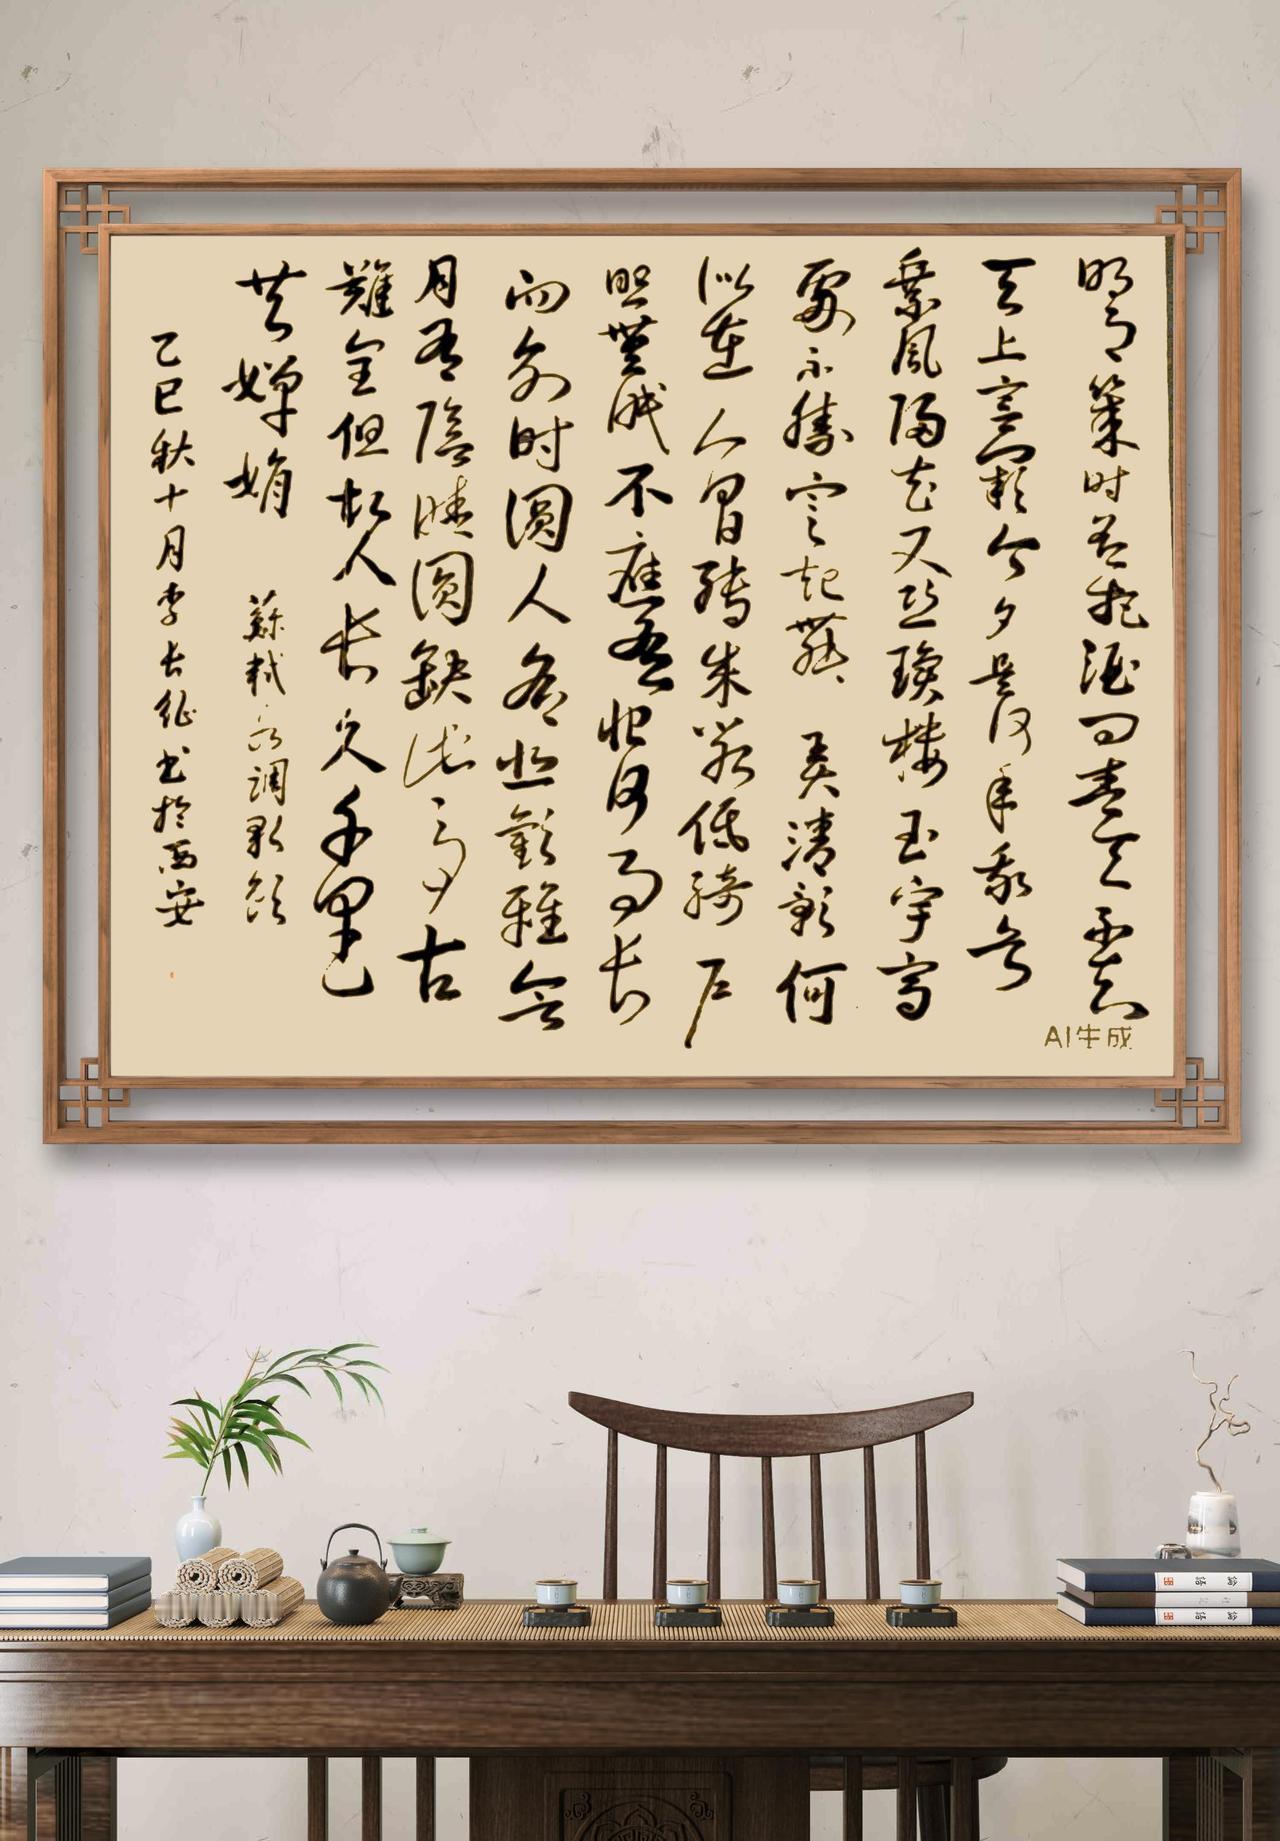 明月幾时有把酒问青天不知
天上宫阙今夕是何年我欲
乘風歸去又恐瓊樓玉宇高
處不勝寒起舞弄清影何
似在人间轉朱閣低綺户
照無眠不應有恨何事长
向别时圆人有悲歡離合
月有陰晴圆缺此事古
難全但願人长久千里
共嬋娟 蘇軾水調歌頭
乙巳秋十月李长征书於西安
AI生成